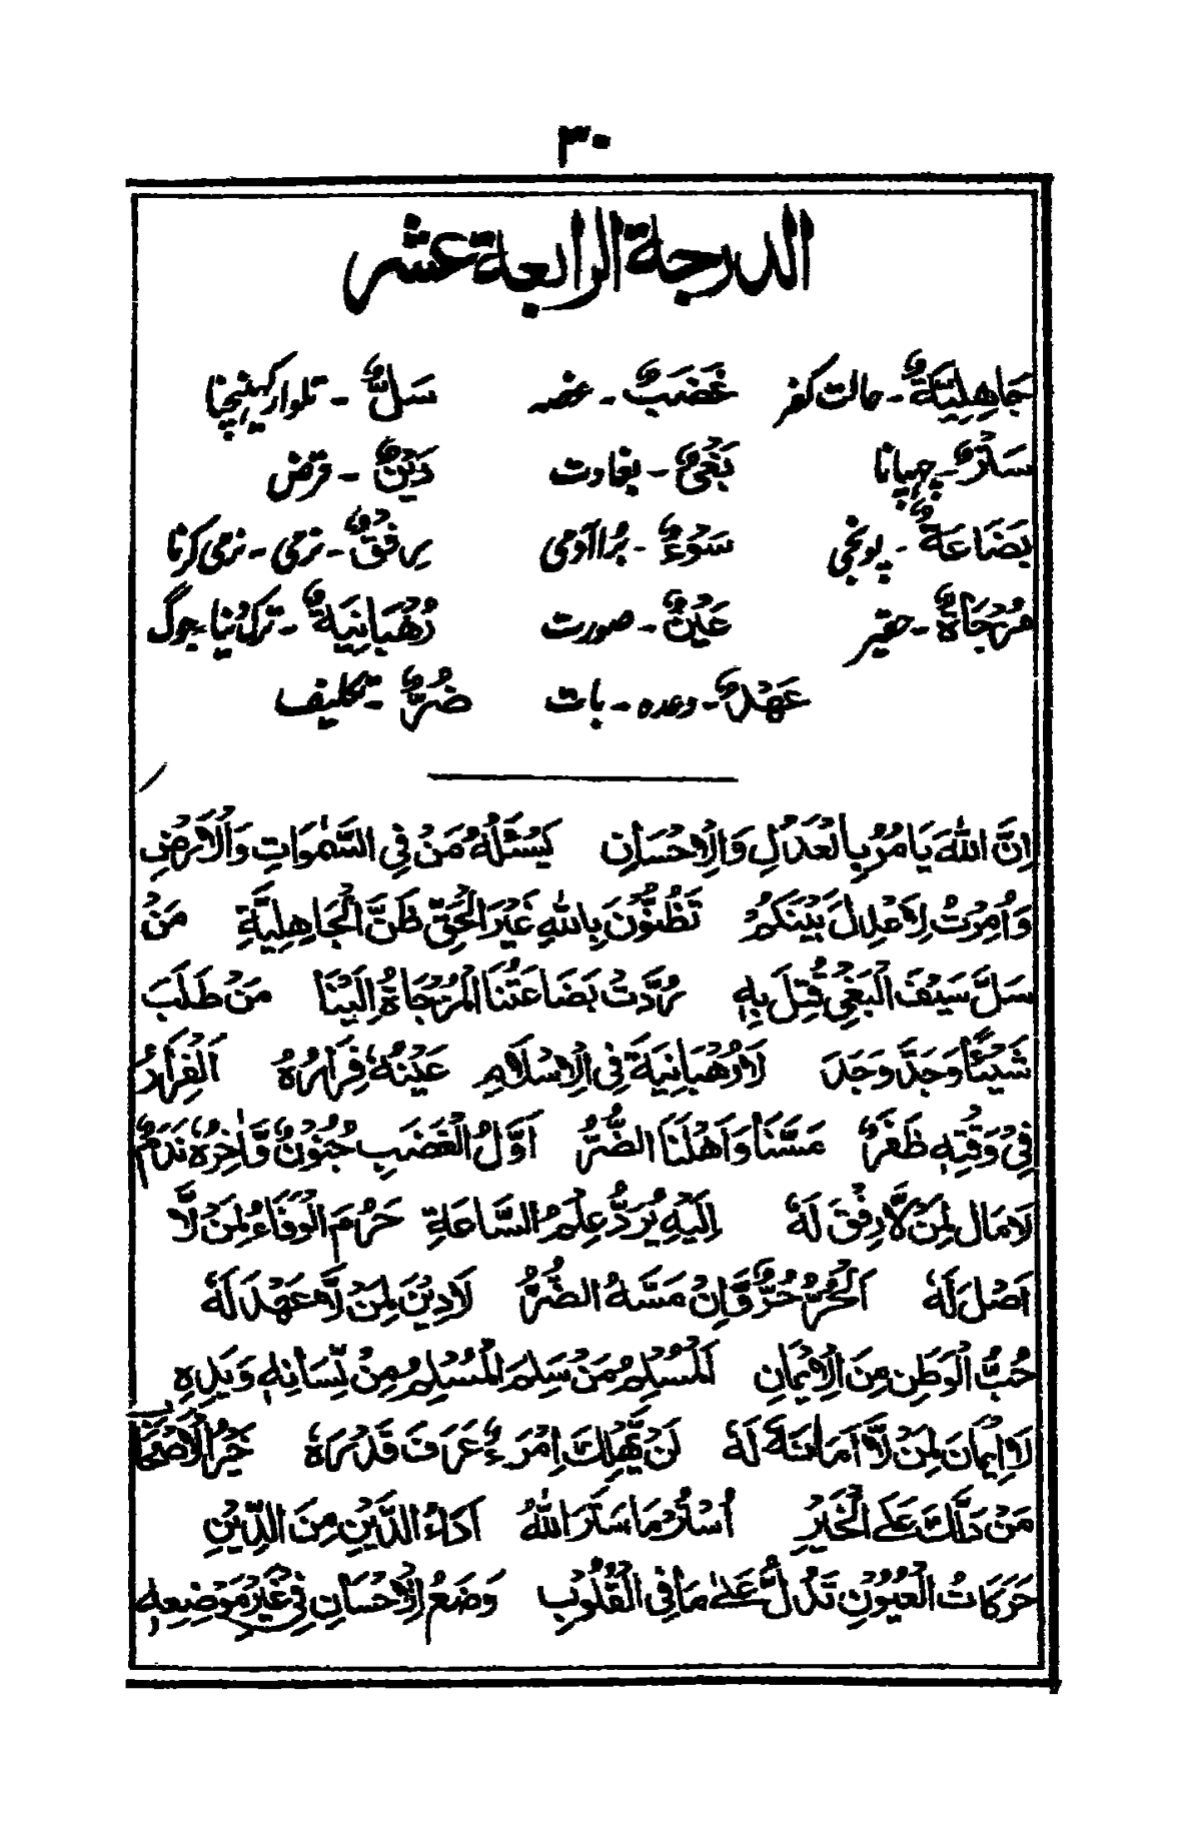 ٣٠
الدرجة الرابعة عشر
جَاهِلِيَّةٌ ۔ حالت کفر غَضَبٌ ۔ غصہ سَلٌّ ۔ تلوار کھینچنا
سَتْرٌ ۔ چھپانا بَغْيٌ ۔ بغاوت دَيْنٌ ۔ قرض
بَضَاعَةٌ ۔ پونجی سَوْءٌ ۔ برا آدمی رِفْقٌ ۔ نرمی ۔ نرمی کرنا
مُزْجَاةٌ ۔ حقیر عَيْنٌ ۔ صورت رُهْبَانِيَةٌ ۔ ترک دنیا ۔ جوگ
عَهْدٌ ۔ وعدہ ۔ بات ضُرٌّ ۔ تکلیف
اِنَّ اللّٰهَ يَامُرُ بِالْعَدْلِ وَالْاِحْسَانِ يَسْئَلُهٗ مَنْ فِي السَّمٰوَاتِ وَالْاَرْضِ
وَاُمِرْتُ لِاَعْدِلَ بَيْنَكُمْ تَظُنُّوْنَ بِاللّٰهِ غَيْرَ الْحَقِّ ظَنَّ الْجَاهِلِيَّةِ مَنْ
سَلَّ سَيْفَ الْبَغْيِ قُتِلَ بِهٖ رُدَّتْ بَضَاعَتُنَا الْمُزْجَاةُ اِلَيْنَا مَنْ طَلَبَ
شَيْئًا وَجَدَّ وَجَدَ لَا رُهْبَانِيَةَ فِي الْاِسْلَامِ عَيْنُهٗ فِرَارُهٗ اَلْفِرَارُ
فِيْ وَقْتِهٖ ظَفَرٌ مَسَّنَا وَاَهْلَنَا الضُّرُّ اَوَّلُ الْغَضَبِ جُنُوْنٌ وَّاٰخِرُهٗ نَدَمٌ
لَا مَالَ لِمَنْ لَّا رِفْقَ لَهٗ اِلَيْهِ يُرَدُّ عِلْمُ السَّاعَةِ حَرُمَ الْوَفَاءُ لِمَنْ لَّا
اَصْلَ لَهٗ اَلْحُرُّ حُرٌّ وَّاِنْ مَسَّهُ الضُّرُّ لَا دِيْنَ لِمَنْ لَّا عَهْدَ لَهٗ
حُبُّ الْوَطَنِ مِنَ الْاِيْمَانِ اَلْمُسْلِمُ مَنْ سَلِمَ الْمُسْلِمُ مِنْ لِّسَانِهٖ وَيَدِهٖ
لَا اِيْمَانَ لِمَنْ لَّا اَمَانَةَ لَهٗ لَنْ يَّهْلِكَ اِمْرَءٌ عَرَفَ قَدْرَهٗ خَيْرُ الْاَصْحَابِ
مَنْ دَلَّكَ عَلَى الْخَيْرِ اُسْتُرْ مَا سَتَرَ اللّٰهُ اَدَاءُ الدَّيْنِ مِنَ الدِّيْنِ
حَرَكَاتُ الْعُيُوْنِ تَدُلُّ عَلٰى مَا فِي الْقُلُوْبِ وَضَعُ الْاِحْسَانِ فِيْ غَيْرِ مَوْضِعِهٖ